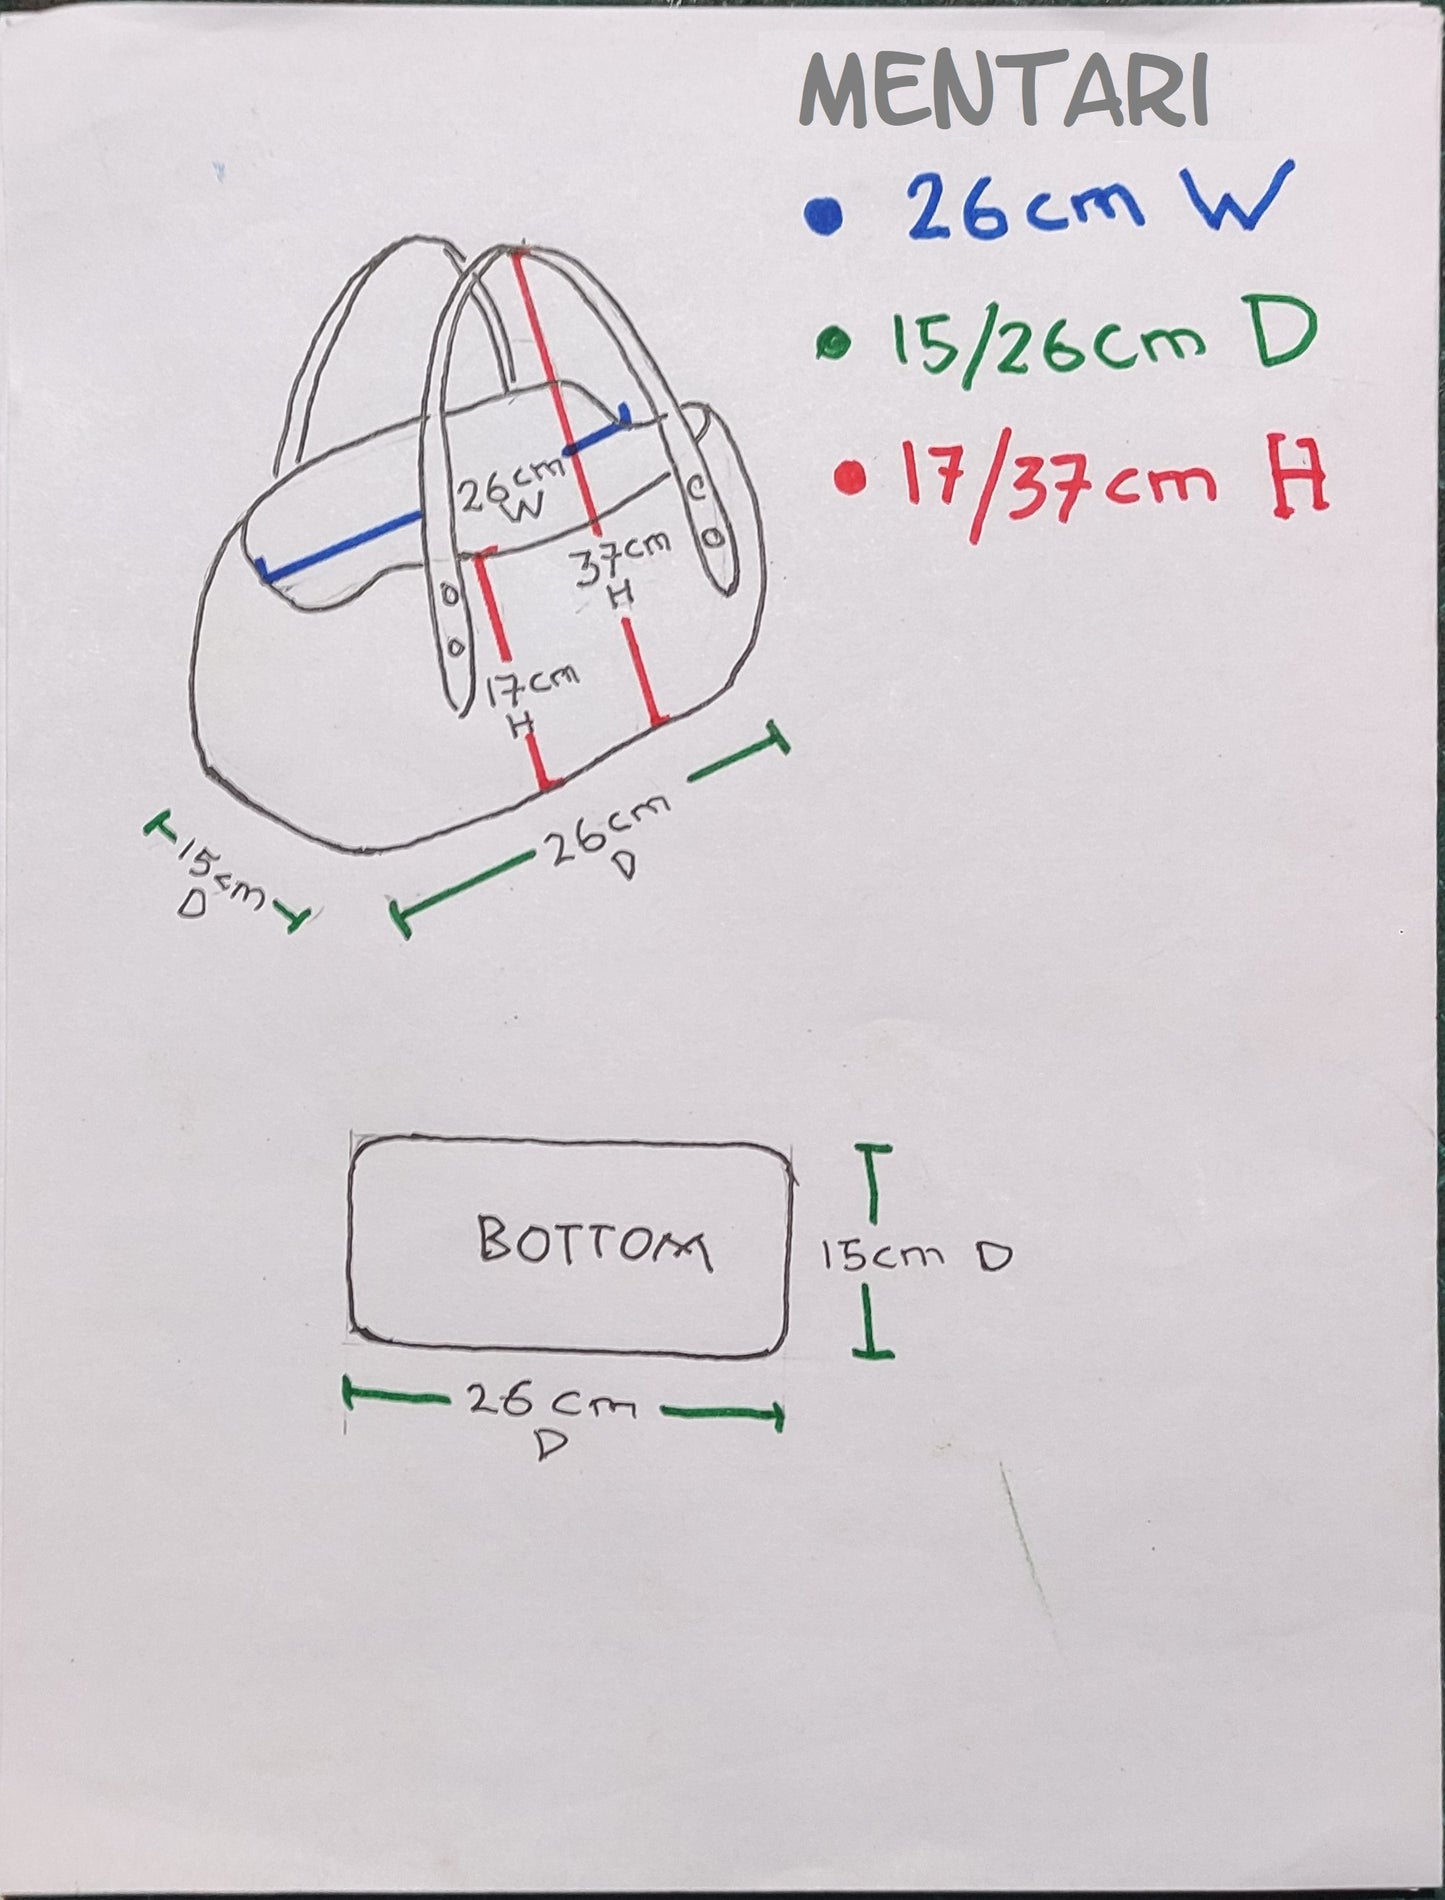 MENTARI
• 26cm W
• 15/26cm D
• 17/37cm H
26cm
W
37cm
H
17cm
H
26cm
D
15cm
D
BOTTOM
15cm D
26cm
D